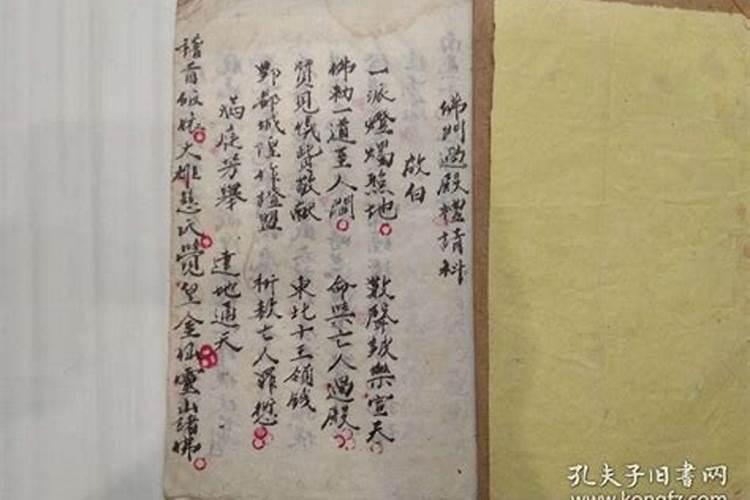 佛川過殿禮請科
啟白
一派燈燭熊地 數聲鼓樂宣天
佛勅一道至人間 命與亡人過殿
賢見儀敬献 東北十王領錢
酆都城隍作證盟 祈赦亡人罪愆
滿庭芳舉 達地通天
稽首皈依大雄慈氏覺皇金仙靈山諸佛
孔夫子旧书网
www.kongfz.com